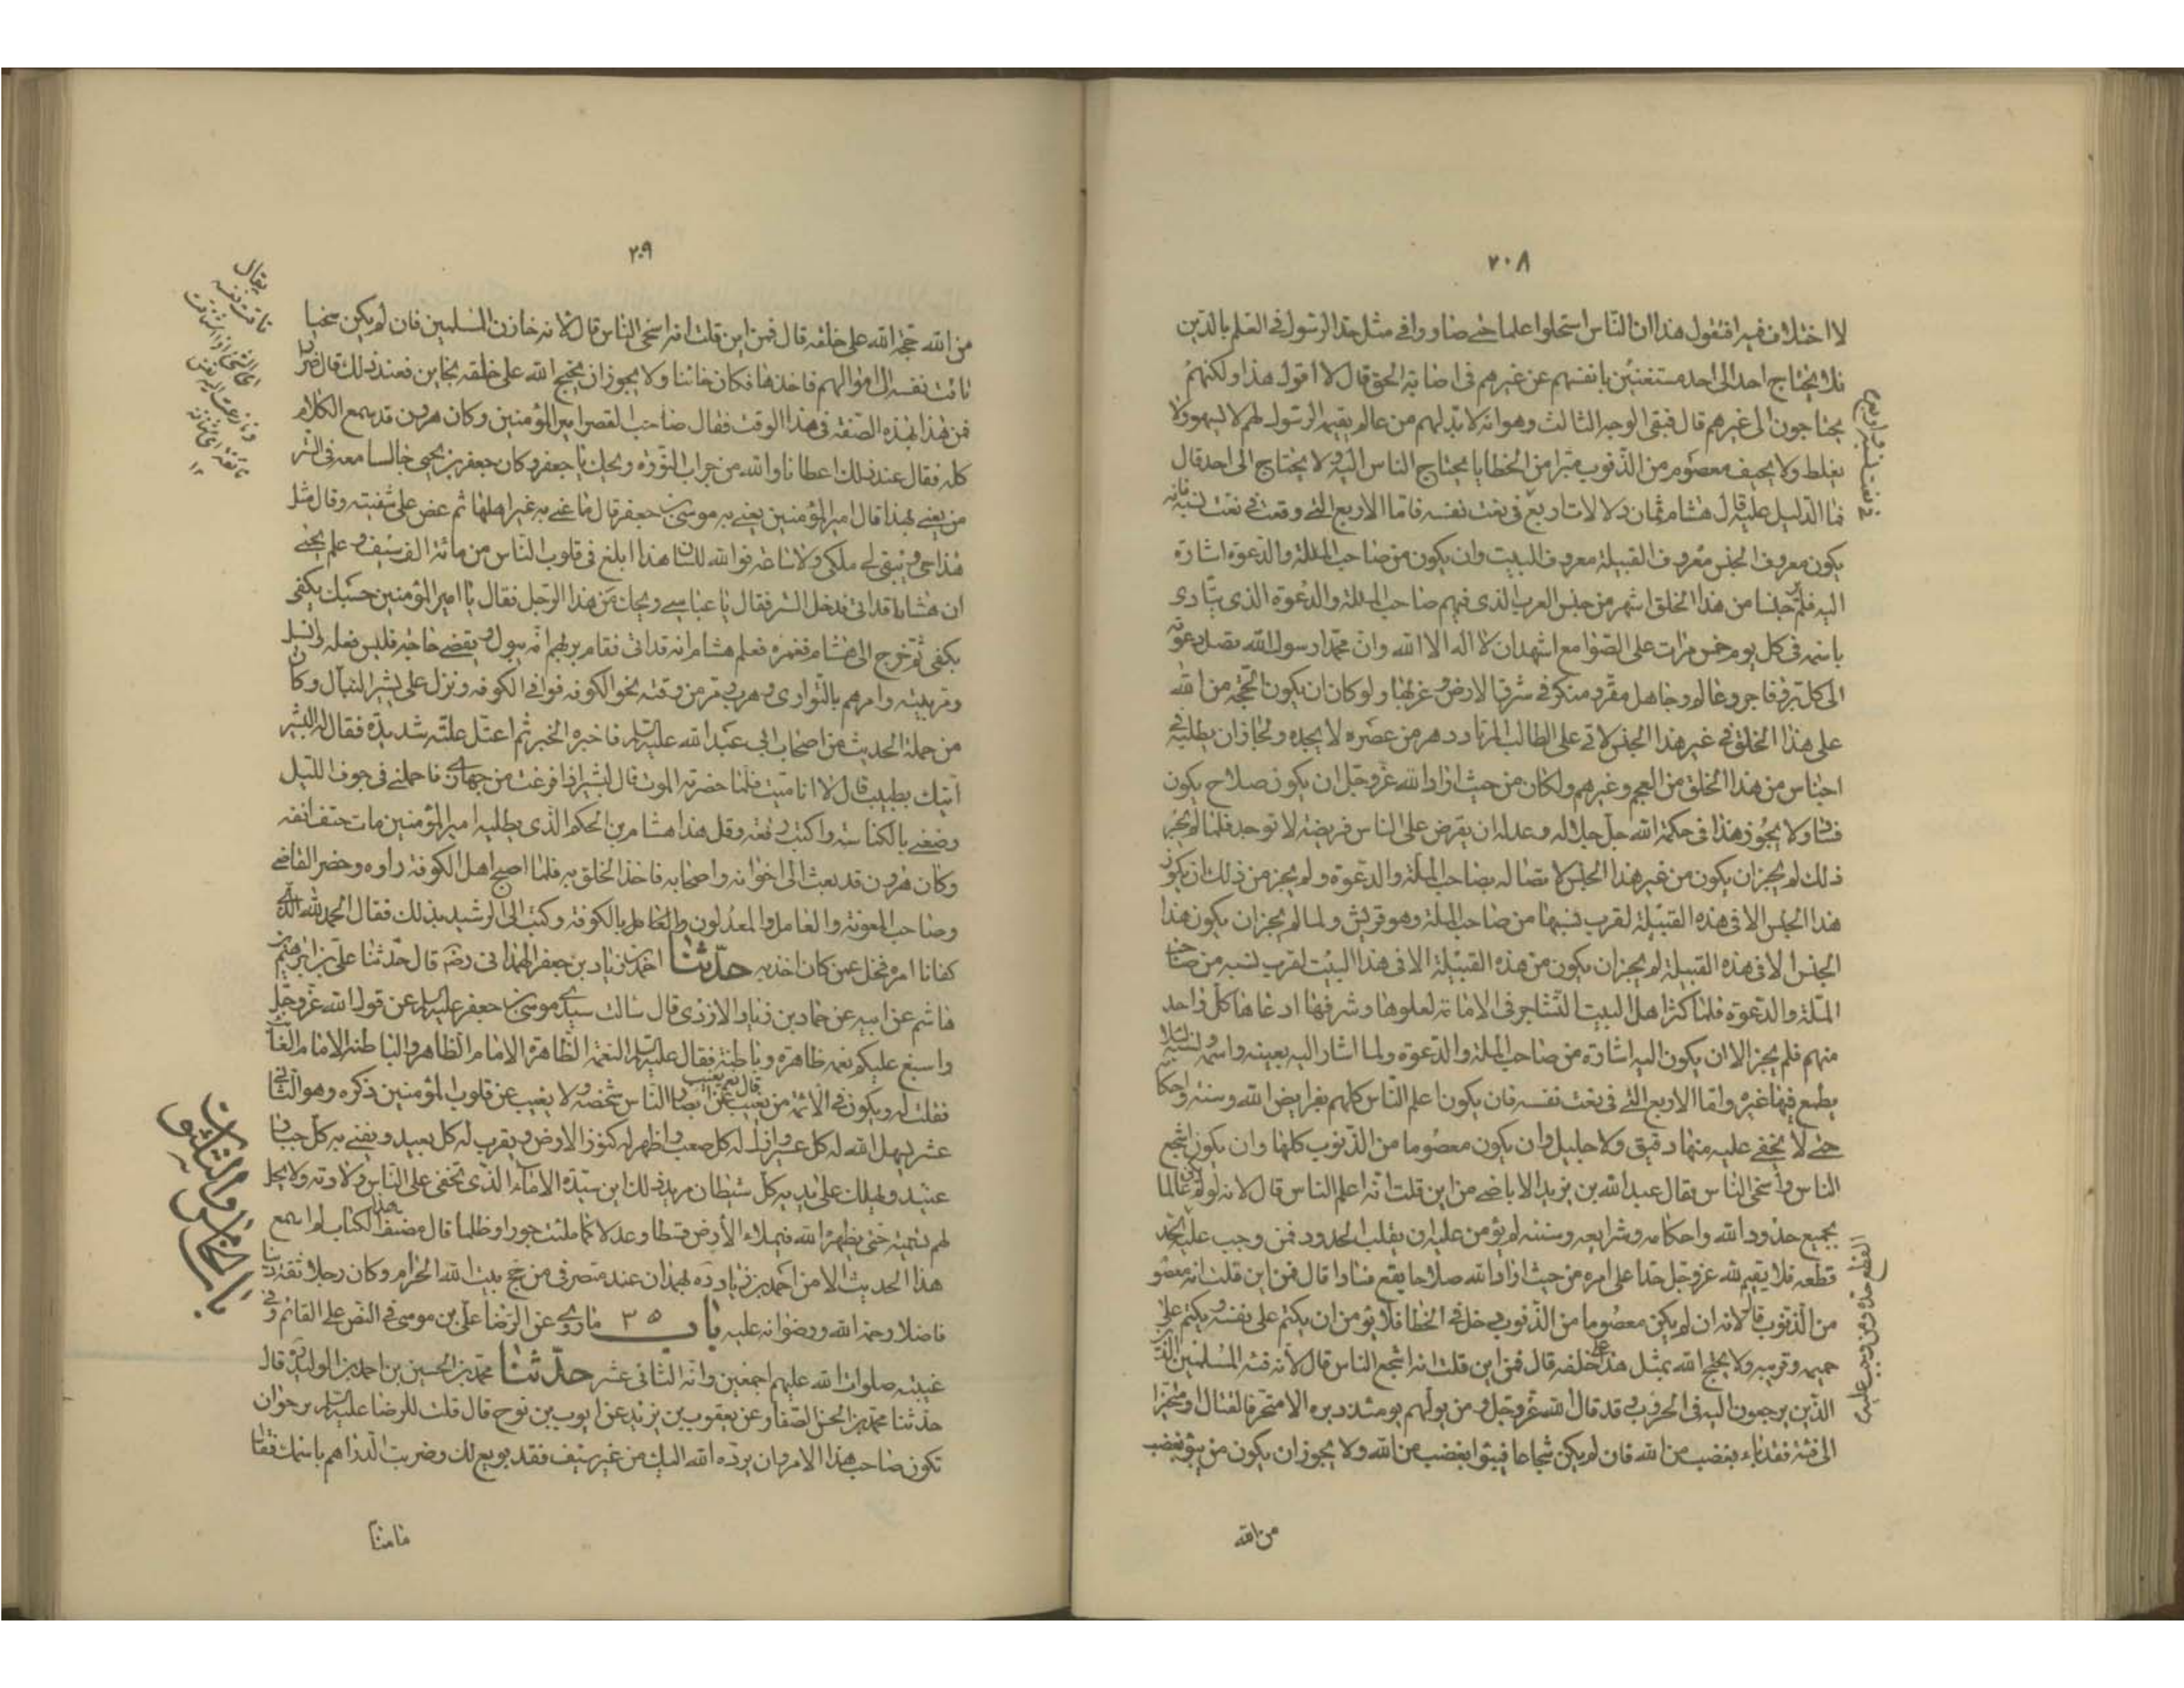 ٢٠٨
لا اختلاف فيه افنقول هذا ان الناس استحلوا علما حتى صاروا في مثل حد الرسول في العلم بالدين
فلا يحتاج احد الى احد مستغنين بانفسهم عن غيرهم في اصابة الحق قال لا اقول هذا ولكنهم
يحتاجون الى غيرهم قال فبقى الوجه الثالث وهو انه لا بد لهم من عالم يقيمه الرسول لهم لا يسهو ولا
يغلط ولا يحيف معصوم من الذنوب مبرا من الخطايا يحتاج الناس اليه ولا يحتاج الى احد قال
فما الدليل عليه قال هشام ثمان دلالات اربع في نعت نفسه فاما الاربع التي وقعت في نعت نسبه فانه
يكون معروف الجنس معروف القبيلة معروف البيت وان يكون من صاحب الملة والدعوة اشارة
اليه فلم ير جنسا من هذا الخلق اشهر من جنس العرب الذى فيهم صاحب الملة والدعوة الذى ينادى
باسمه في كل يوم خمس مرات على الصوامع اشهد ان لا اله الا الله وان محمدا رسول الله تصل دعوته
الى كل بر وفاجر وعالم وجاهل مقر ومنكر في شرق الارض وغربها ولو كان ان يكون الحجة من الله
على هذا الخلق في غير هذا الجنس لاتى على الطالب المرتاد دهر من عصره لا يجده ولجاز ان يطلبه في
اجناس من هذا الخلق من العجم وغيرهم ولكان من حيث اراد الله عز وجل ان يكون صلاح يكون
فساد ولا يجوز هذا في حكمة الله جل جلاله وعدله ان يفرض على الناس فريضة لا توجد فلما لم يجز
ذلك لم يجز ان يكون من غير هذا الجنس لاتصاله بصاحب الملة والدعوة ولم يجز من ذلك ان يكون
هذا الجنس الا في هذه القبيلة لقرب نسبها من صاحب الملة وهو قريش ولما لم يجز ان يكون هذا
الجنس الا في هذه القبيلة لم يجز ان يكون من هذه القبيلة الا في هذا البيت لقرب نسبه من صاحب
الملة والدعوة فلما كثر اهل البيت التشاجر في الامامة لعلوها وشرفها ادعاها كل واحد
منهم فلم يجز الا ان يكون اليه اشارة من صاحب الملة والدعوة ولما اشار اليه بعينه واسمه ونسبه لئلا
يطمع فيها غيره واما الاربع التي في نعت نفسه فان يكون اعلم الناس كلهم بفرايض الله وسننه واحكا
حتى لا يخفى عليه منها دقيق ولا جليل وان يكون معصوما من الذنوب كلها وان يكون اشجع
الناس واسخى الناس فقال عبد الله بن يزيد الاباضى من اين قلت انه اعلم الناس قال لانه لو لم يكن عالما
بجميع حدود الله واحكامه وشرايعه وسننه لم يؤمن عليه ان يقلب الحدود فمن وجب عليه الحد
قطعه فلا يقيم لله عز وجل حدا على امره من حيث اراد الله صلاحا يقع فسادا قال فمن اين قلت انه معصو
من الذنوب قال لانه ان لم يكن معصوما من الذنوب دخل في الخطا فلا يؤمن ان يكتم على نفسه ويكتم على
حميمه وقريبه ولا يحتج الله بمثل هذا على خلقه قال فمن اين قلت انه اشجع الناس قال لانه فئة المسلمين الذى
الذين يرجعون اليه في الحروب وقد قال الله عز وجل ومن يولهم يومئذ دبره الا متحرفا لقتال او متحيزا
الى فئة فقد باء بغضب من الله فان لم يكن شجاعا فيبوء بغضب من الله ولا يجوز ان يكون من يبوء بغضب
من الله
٢٠٩
من الله حجة الله على خلقه قال فمن اين قلت انه اسخى الناس قال لانه خازن المسلمين فان لم يكن سخيا
تاقت نفسه الى اموالهم فاخذها فكان خائنا ولا يجوز ان يحتج الله على خلقه بخاين فعند ذلك قال ضرار
فمن هذا بهذه الصفة في هذا الوقت فقال صاحب القصر امير المؤمنين وكان هرون قد سمع الكلام
كله فقال عند ذلك اعطانا والله من جراب النورة ويحك يا جعفر وكان جعفر بن يحيى جالسا معه في الستر
من يعنى بهذا قال امير المؤمنين يعنى به موسى بن جعفر قال ما عنى به غير اهلها ثم عض على شفتيه وقال مثل
هذا حى ويبقى لى ملكى ولا ساعة فوالله للسان هذا ابلغ في قلوب الناس من مائة الف سيف وعلم يحيى
ان هشاما قد اتى فدخل الستر فقال يا عباسى ويحك من هذا الرجل فقال يا امير المؤمنين حسبك يكفى
يكفى ثم خرج الى هشام فغمزه فعلم هشام انه قد اتى فقام يريهم انه يبول ويقضى حاجة فلبس نعله وانسل
ومر ببيته وامرهم بالتوارى وهرب ومر من وقته نحو الكوفة فوافى الكوفة ونزل على بشير النبال وكان
من حملة الحديث من اصحاب ابى عبد الله عليه السلم فاخبره الخبر ثم اعتل علة شديدة فقال له البشير
آتيك بطبيب قال لا انا ميت فلما حضرته الموت قال لبشير اذا فرغت من جهازى فاحملنى في جوف الليل
وضعنى بالكناسة واكتب رقعة وقل هذا هشام بن الحكم الذى يطلبه امير المؤمنين مات حتف انفه
وكان هرون قد بعث الى اخوانه واصحابه فاخذ الخلق به فلما اصبح اهل الكوفة راوه وحضر القاضى
وصاحب المعونة والعامل والمعدلون والعامل بالكوفة وكتب الى الرشيد بذلك فقال الحمد لله الذى
كفانا امره فخلى عمن كان اخذ به حدثنا احمد بن زياد بن جعفر الهمدانى رضه قال حدثنا على بن ابرهيم بن
هاشم عن ابيه عن حماد بن زياد الازدى قال سالت سيدى موسى بن جعفر عليه السلم عن قول الله عز وجل
واسبغ عليكم نعمه ظاهرة وباطنة فقال عليه السلم النعمة الظاهرة الامام الظاهر والباطنة الامام الغائب
فقلت له ويكون في الائمة من يغيب قال نعم يغيب عن ابصار الناس شخصه ولا يغيب عن قلوب المؤمنين ذكره وهو الثانى
عشر يسهل الله له كل عسير ويذلل له كل صعب واظهر له كنوز الارض ويقرب له كل بعيد ويفنى به كل جبار
عنيد ويهلك على يديه كل شيطان مريد ذلك ابن سيدة الاماء الذى تخفى على الناس ولادته ولا يحل
لهم تسميته حتى يظهره الله فيملاء الأرض قسطا وعدلا كما ملئت جورا وظلما قال مصنف هذا الكتاب لم اسمع
هذا الحديث الا من احمد بن زياد ره بهمدان عند منصرفى من حج بيت الله الحرام وكان رجلا ثقة دينا
فاضلا رحمة الله ورضوانه عليه باب ٣٥ ما روى عن الرضا على بن موسى في النص على القائم وفى
غيبته صلوات الله عليهم اجمعين وانه الثانى عشر حدثنا محمد بن الحسين بن احمد بن الوليد ره قال
حدثنا محمد بن الحسن الصفار عن يعقوب بن يزيد عن ايوب بن نوح قال قلت للرضا عليه السلم نرجوان
تكون صاحب هذا الامر وان يرده الله اليك من غير سيف فقد بويع لك وضربت الدراهم باسمك فقال
ما منا
يقال
تاقت نفسه
الى الشئ
باب الخامس والثلثون